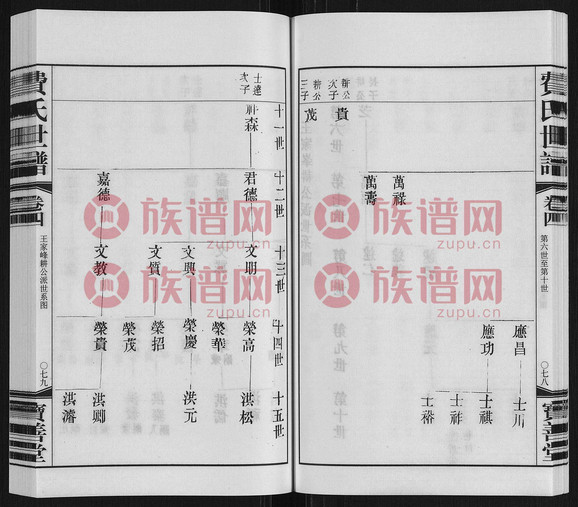 費氏世譜
卷四
第六世至第十世
〇七八
寶善堂
耕公
次子
貴
耕公
三子
茂
萬祿
萬壽
應昌
應功
士川
士祺
士祚
士裕
費氏世譜
卷四
王家峰耕公派世系图
〇七九
寶善堂
十一世
十二世
十三世
十四世
十五世
士達
次子
森
君德
嘉德
文明
文興
文質
文教
榮高
榮華
榮慶
榮招
榮茂
榮貴
洪松
洪元
洪卿
洪濬
族谱网
zupu.cn
族谱网
zupu.cn
族谱网
zupu.cn
族谱网
zupu.cn